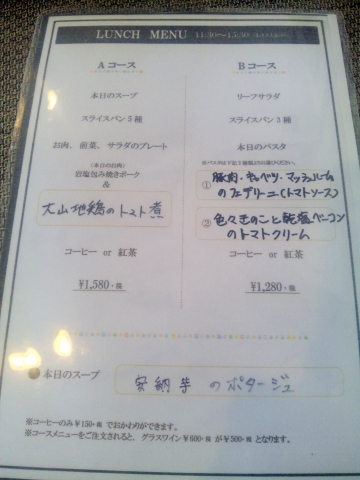 LUNCH MENU 11:30～15:30
Aコース
本日のスープ
スライスパン5種
お肉、前菜、サラダのプレート
(本日のお肉)
岩塩包み焼きポーク
&
大山地鶏のトマト煮
コーヒー or 紅茶
¥1,580+税
Bコース
リーフサラダ
スライスパン3種
本日のパスタ
① 豚肉・キャベツ・マッシュルーム
のフェデリーニ(トマトソース)
② 色々きのこと乾塩ベーコン
のトマトクリーム
コーヒー or 紅茶
¥1,280+税
本日のスープ
安納芋のポタージュ
※コーヒーのみ¥150+税でおかわりができます。
※コースメニューをご注文されると、グラスワイン¥600+税が¥500+税となります。